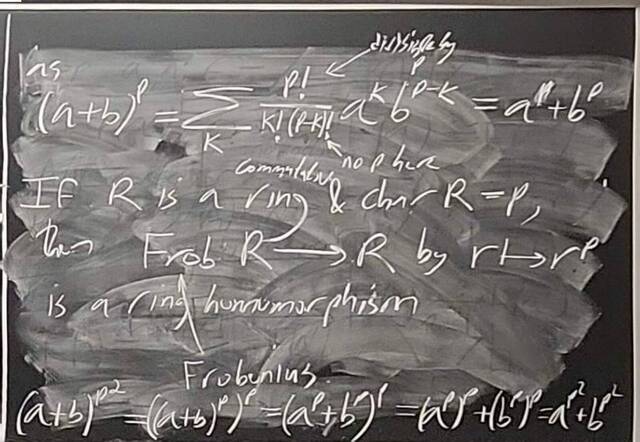 divisible by p
as
(a+b)^p = ∑_K p!/(K!(p-K)!) a^K b^{p-K} = a^p + b^p
no p here
commutative
If R is a ring & char R = p,
then Frob: R → R by r ↦ r^p
is a ring homomorphism
Frobenius.
(a+b)^{p^2} = ((a+b)^p)^p = (a^p + b^p)^p = (a^p)^p + (b^p)^p = a^{p^2} + b^{p^2}